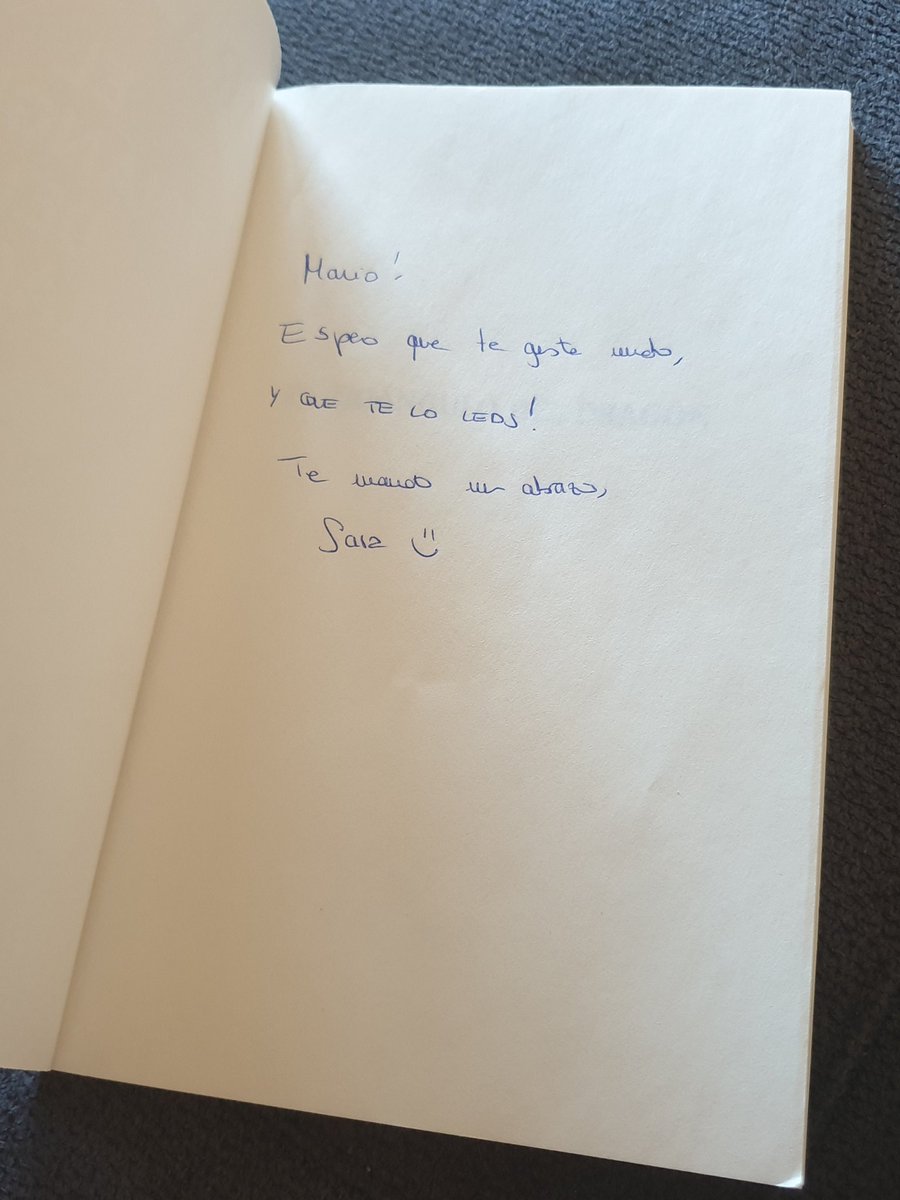 Mario!
Espero que te guste mucho,
Y QUE TE LO LEAS!
Te mando un abrazo,
Sara